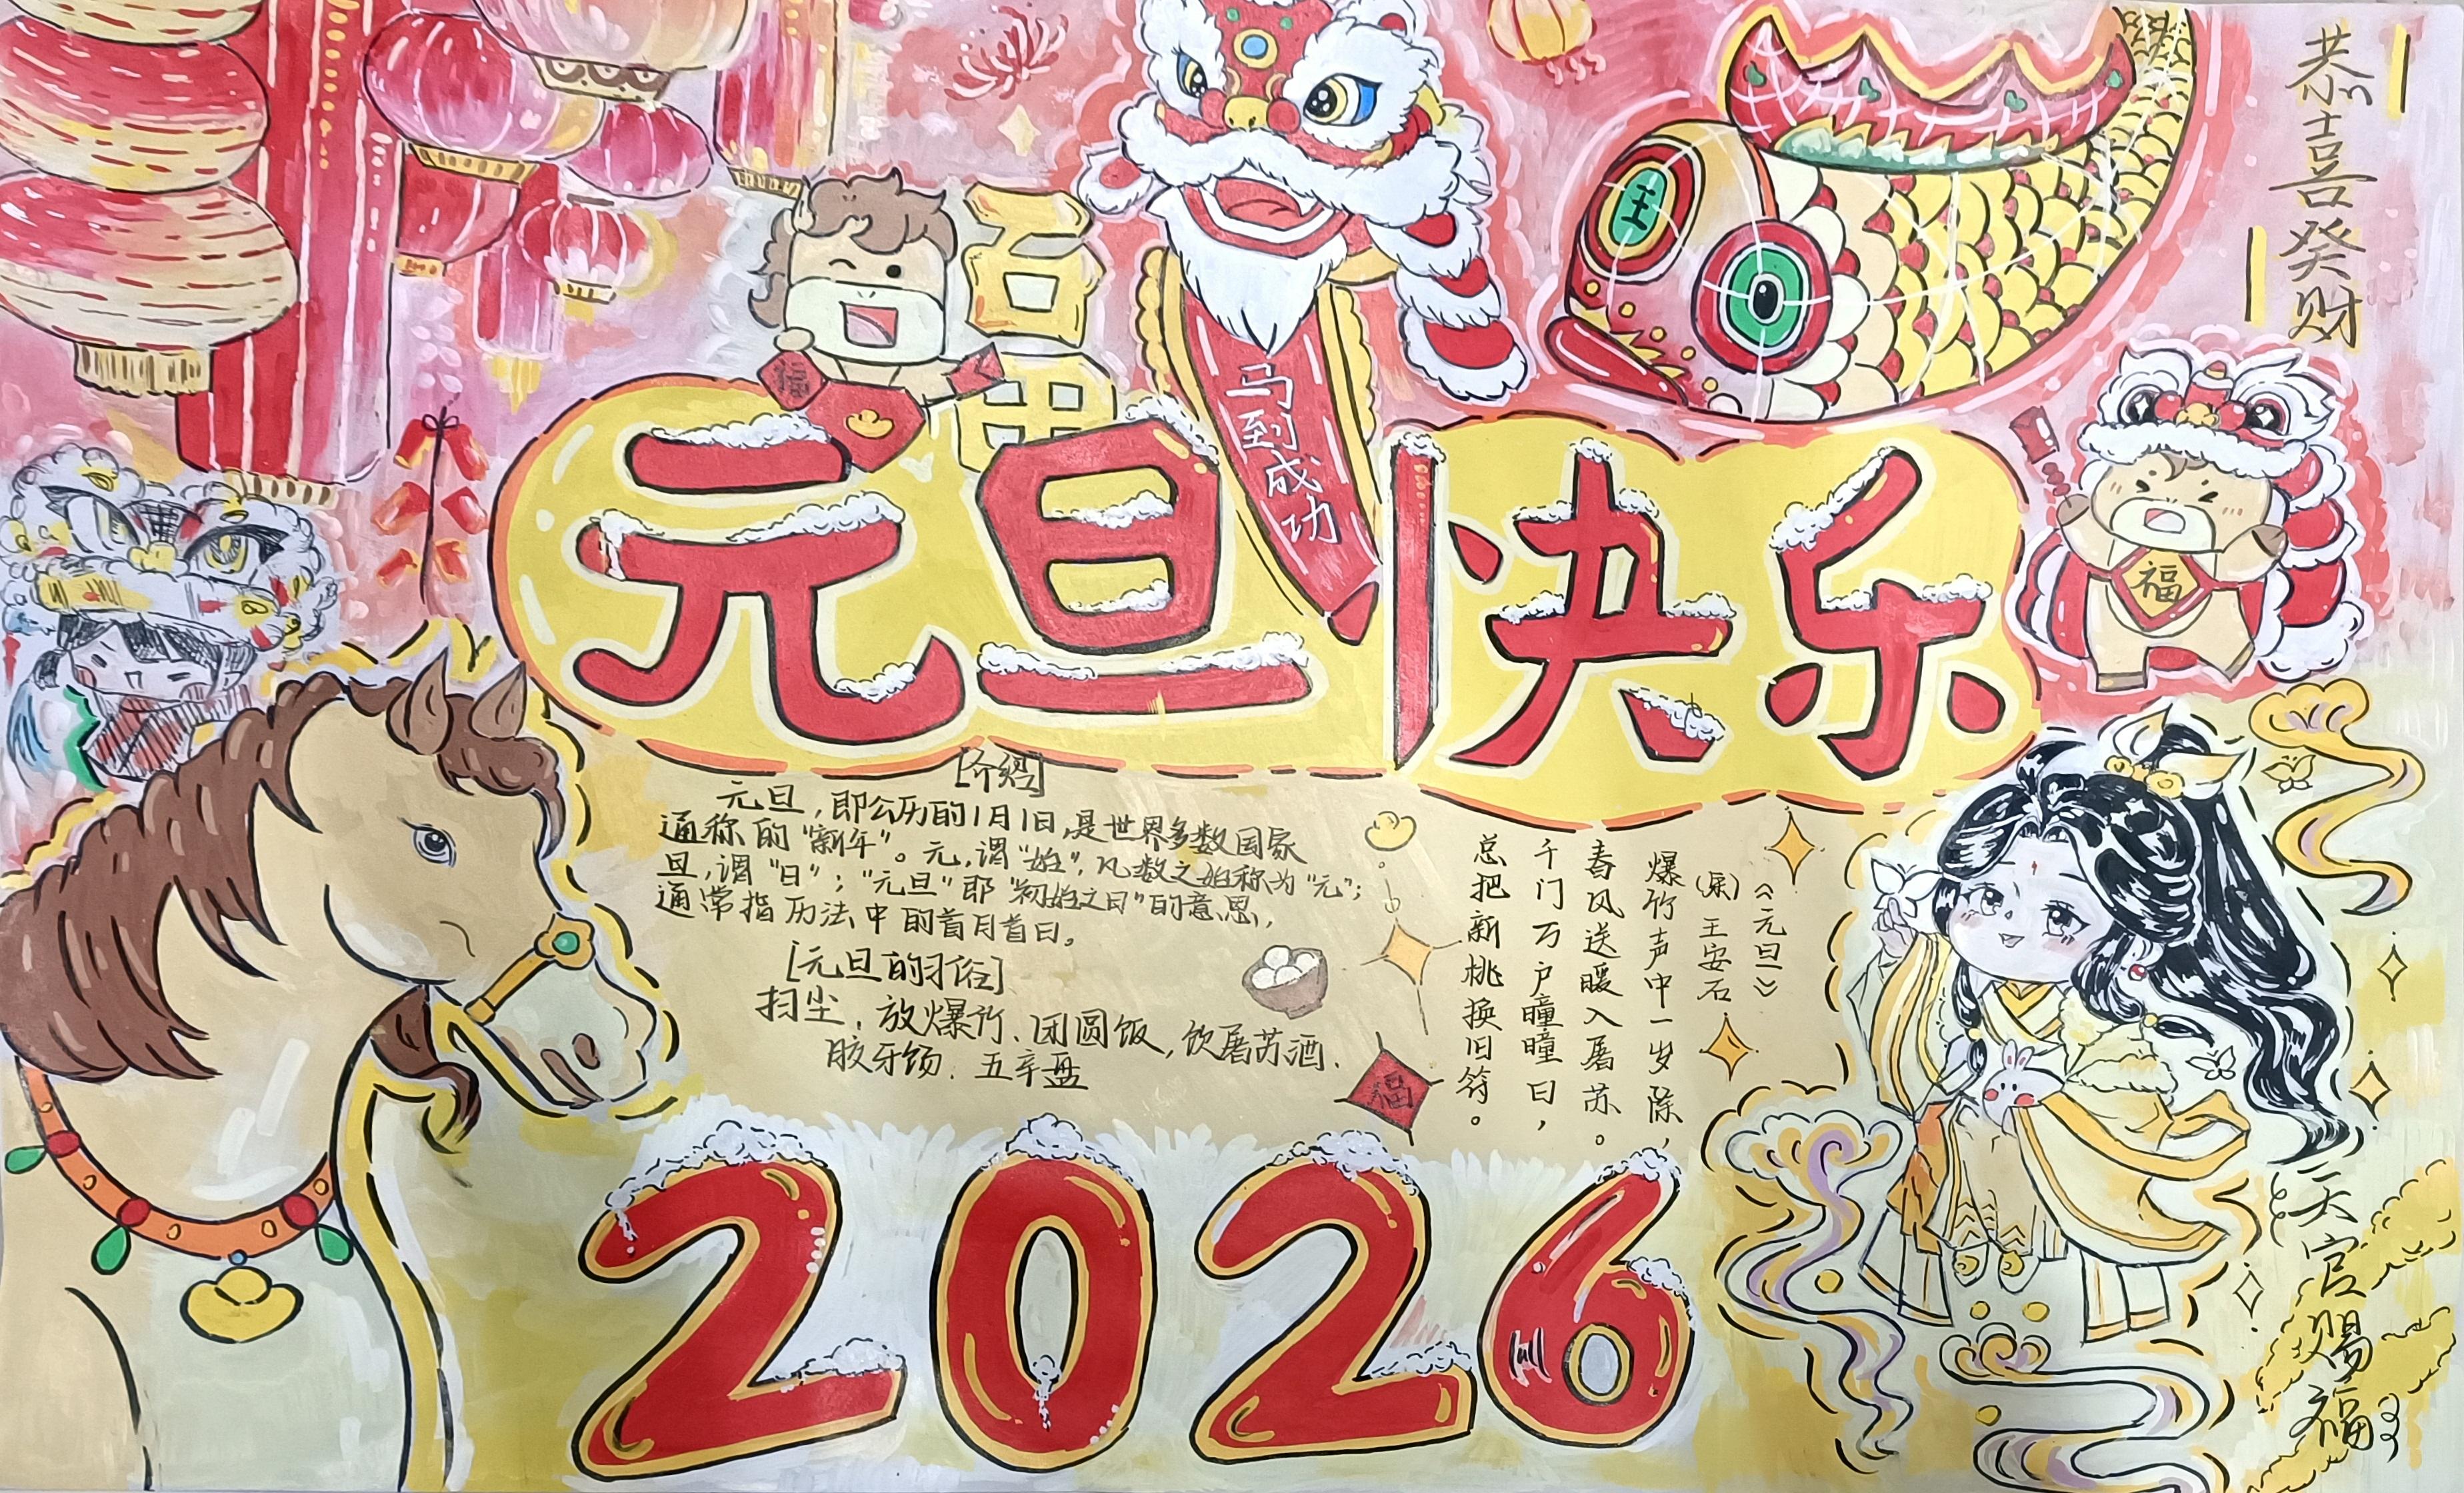 恭喜癸财
王
福
马到成功
福
元旦快乐
[介绍]
元旦,即公历的1月1日,是世界多数国家
通称的"新年"。元,谓"始",凡数之始称为"元";
旦,谓"日";"元旦"即"初始之日"的意思,
通常指历法中的首月首日。
[元旦的习俗]
扫尘、放爆竹、团圆饭,饮屠苏酒、
胶牙饧、五辛盘
《元旦》
(宋)王安石
爆竹声中一岁除,
春风送暖入屠苏。
千门万户瞳瞳日,
总把新桃换旧符。
福
2026
天官赐福